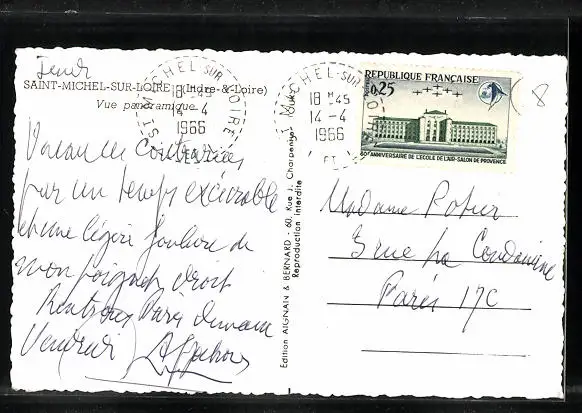 Jeudi
SAINT-MICHEL-SUR-LOIRE (Indre-&-Loire)
Vue panoramique
Vacances contrariées
par un temps exécrable
et une légère foulure de
mon poignet droit
Rentrons Paris demain
Vendredi
Edition AIGNAN & BERNARD - 60, Rue J. Charpentier
Reproduction interdite
ST MICHEL SUR LOIRE
18 H 45
14-4
1966
ST MICHEL SUR LOIRE
18 H 45
14-4
1966
REPUBLIQUE FRANÇAISE
0,25
ANNIVERSAIRE DE L'ECOLE DE L'AIR-SALON DE PROVENCE
8
Madame Potier
3 rue La Condamine
Paris 17e